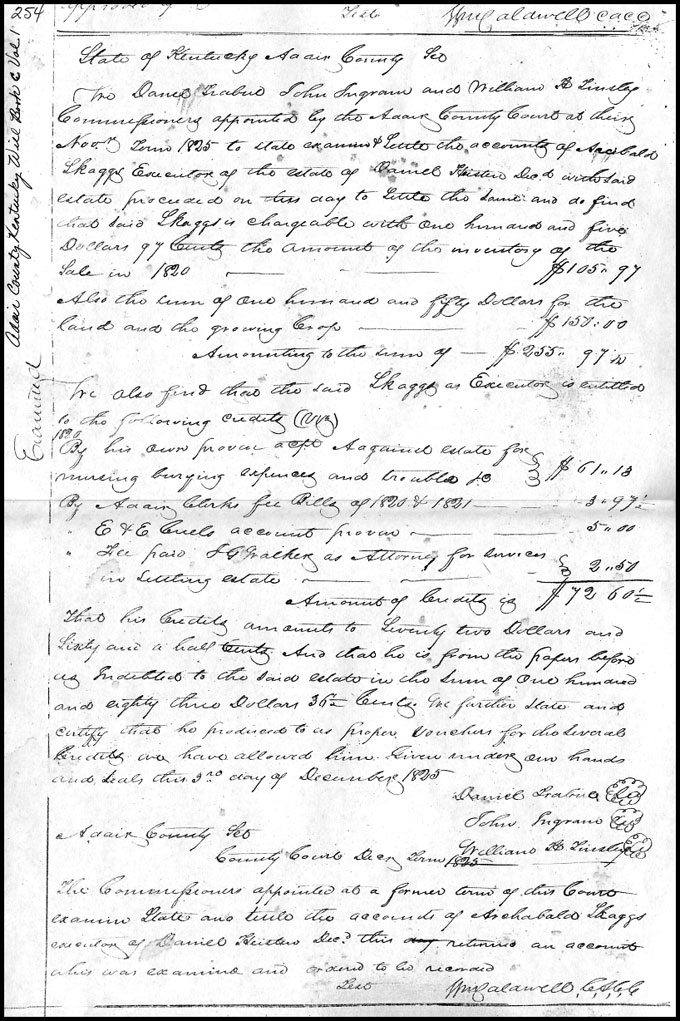 254
Test Wm Caldwell C A C C
Adair County, Kentucky Will Book C Vol. 1
Examined
State of Kentucky Adair County Sct
We Daniel Trabue John Ingram and William H Tinsley
Commissioners appointed by the Adair County Court at their
Novr Term 1825 to state examine & settle the accounts of Archabald
Skaggs Executor of the estate of Daniel Heisten Decd with said
estate proceeded on this day to settle the same and do find
that said Skaggs is chargeable with one hundred and five
Dollars 97 Cents the amount of the inventory of the
Sale in 1820 — — — $105.. 97
Also the sum of one hundred and fifty Dollars for the
land and the growing Crop — $150..00
Amounting to the sum of — $255.. 97
We also find that the said Skaggs as Executor is entitled
to the following credits (Viz)
1820
By his own proven acpt Against estate for
nursing burying expences and trouble &c $61..13
By Adair Clerks fee Bills of 1820 & 1821 — 3..97½
" E & E Creels account proven — 5..00
" Fee paid J G Walker as Attorney for services
in settling estate — — 2..50
Amount of Credits is $72 60½
That his Credits amounts to Seventy two Dollars and
Sixty and a half Cents And that he is from the papers before
us Indebted to the said estate in the sum of One hundred
and eighty three Dollars 36½ Cents. We further state and
certify that he produced to us proper Vouchers for the several
Credits we have allowed him. Given under our hands
and seals this 3rd day of December 1825
Daniel Trabue
John Ingram
William H Tinsley
Adair County Sct
County Court Decr Term 1825
The Commissioners appointed at a former term of this Court
examin State and settle the accounts of Archabald Skaggs
executor of Daniel Heisten Decd this day returned an account
whis was examine and ordered to be recorded
Test Wm Caldwell, C A C C